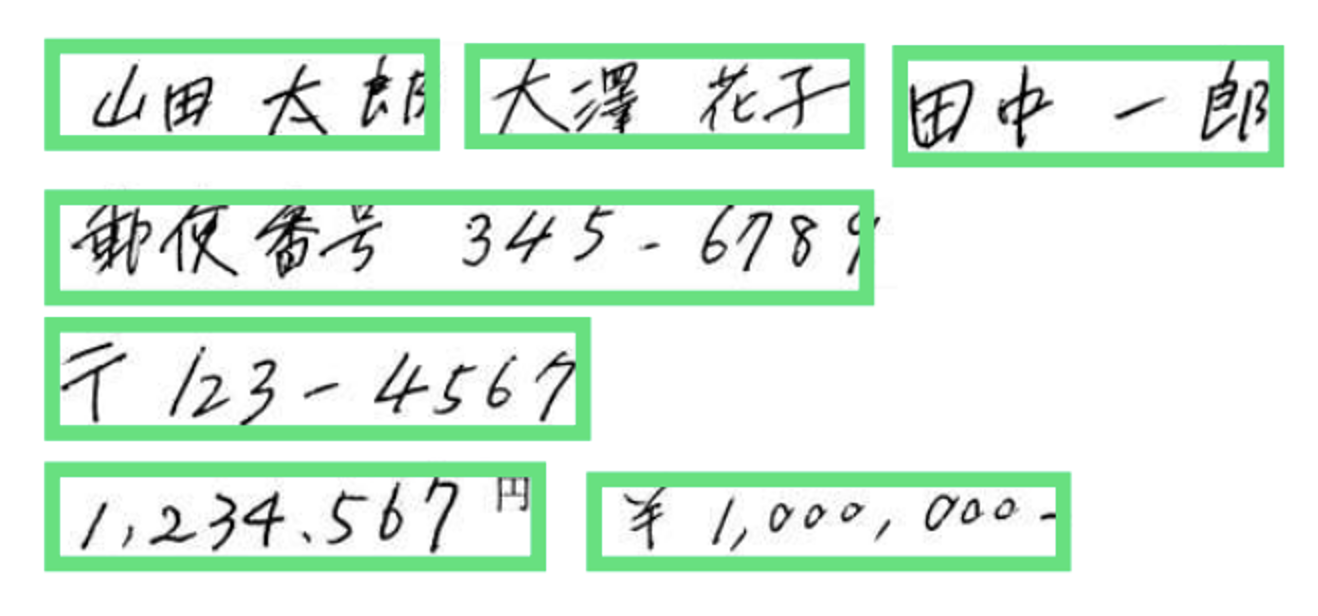 山田 太郎 大澤 花子 田中 一郎
郵便番号 345-6789
〒 123-4567
1,234,567円 ¥1,000,000-